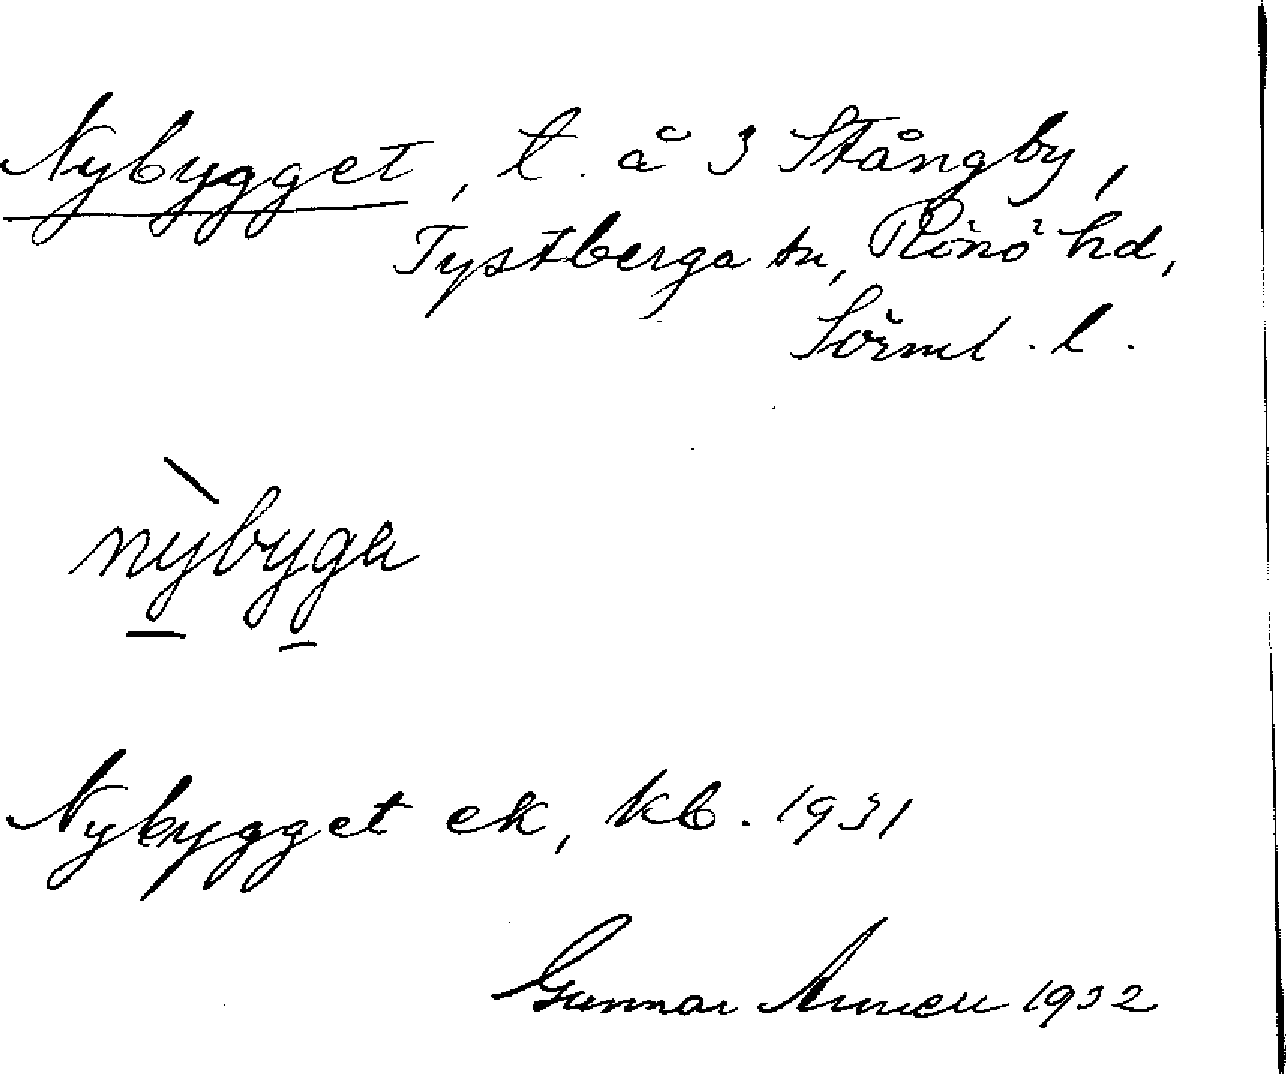 Nybygget, t. å 3 Stångby,
Tystberga sn, Rönö hd,
Sörml. l.
nỳbyga
Nybygget ek, kb. 1931
Gunnar 1932